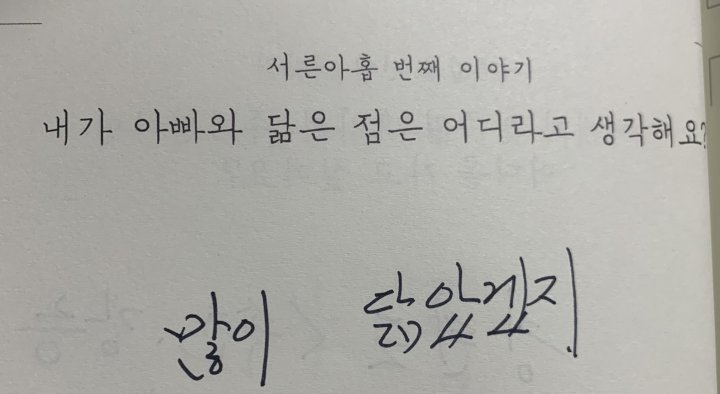 서른아홉 번째 이야기
내가 아빠와 닮은 점은 어디라고 생각해요?
많이 닮았겠지.